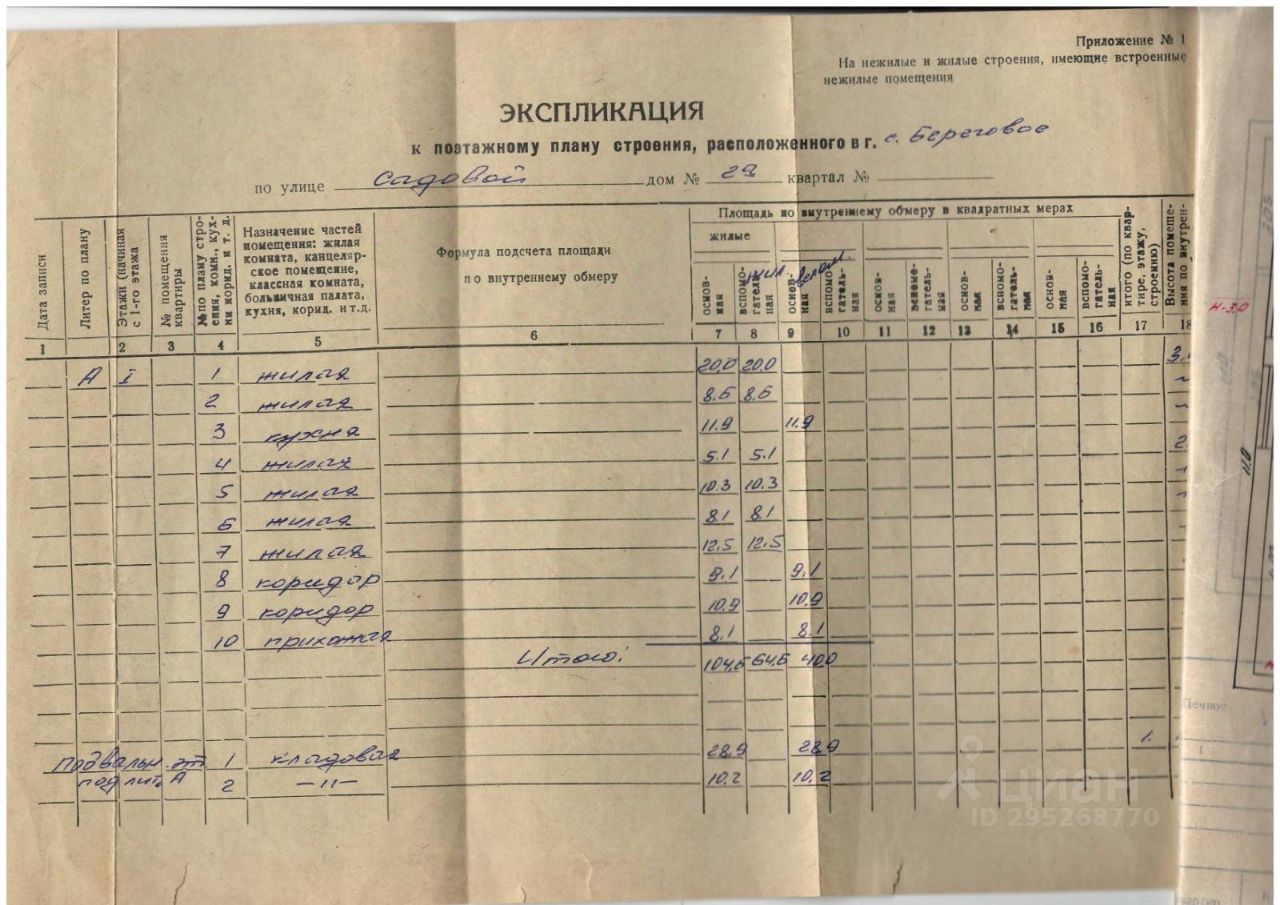 Приложение № 1
На нежилые и жилые строения, имеющие встроенные
нежилые помещения
ЭКСПЛИКАЦИЯ
к поэтажному плану строения, расположенного в г. с. Береговое
по улице Садовой дом № 29 квартал №
Дата записи
Литер по плану
Этажи (начиная с 1-го этажа
№ помещения квартиры
№ по плану строения, комн., кухни корид. и т. д.
Назначение частей помещения: жилая комната, канцелярское помещение, классная комната, больничная палата, кухня, корид. и т.д.
Формула подсчета площади по внутреннему обмеру
Площадь по внутреннему обмеру в квадратных мерах
жилые
жил. вспом.
основная вспомогательная основная вспомогательная основная вспомогательная основная вспомогательная основная вспомогательная
итого (по квартире, этажу, строению)
Высота помеще-
ния по внутрен-
1 2 3 4 5 6 7 8 9 10 11 12 13 14 15 16 17 18
А I 1 жилая 20,0 20,0
2 жилая 8.6 8.6
3 кухня 11.9 11.9
4 жилая 5.1 5.1
5 жилая 10.3 10.3
6 жилая 8.1 8.1
7 жилая 12.5 12.5
8 коридор 9.1 9.1
9 коридор 10.9 10.9
10 прихожая 8.1 8.1
Итого: 104,6 64,6 40,0
Подвальн. эт 1 кладовая 28,9 28,9
под лит. А 2 —"— 10,2 10,2
циан
ID 295268770
Н-3,0
11,0